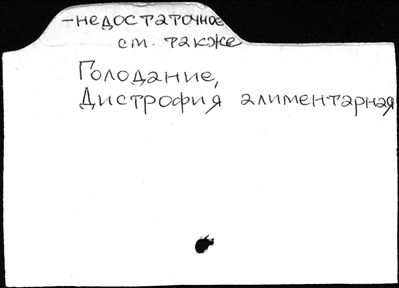 -недостаточное
см. также
Голодание,
Дистрофия алиментарная